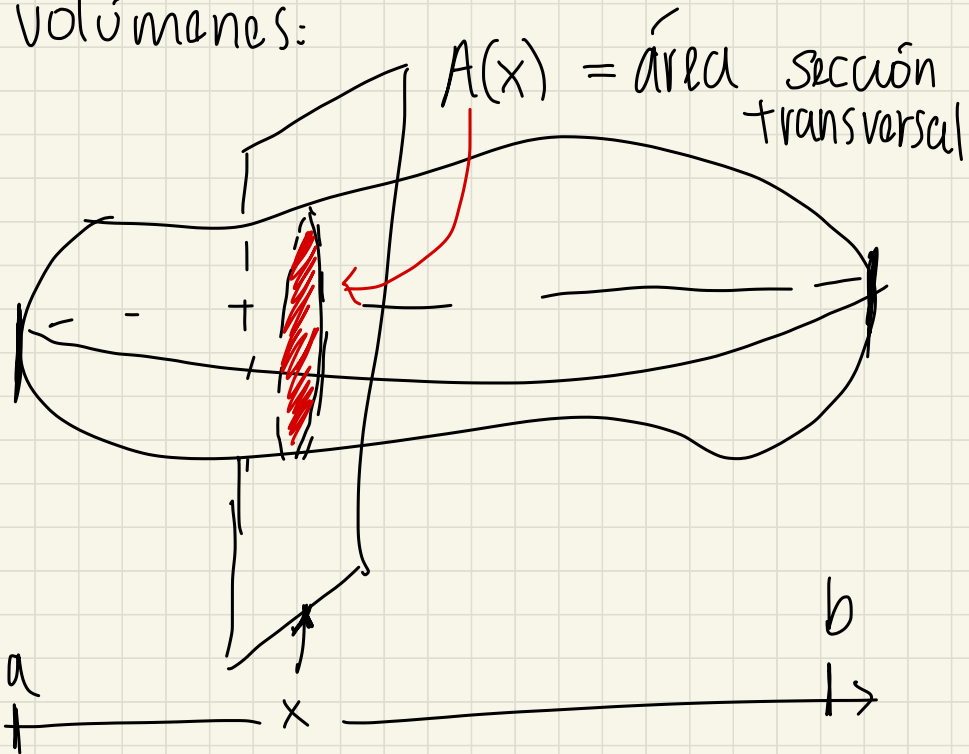 volúmenes:
A(x) = área sección
transversal
b
a
x